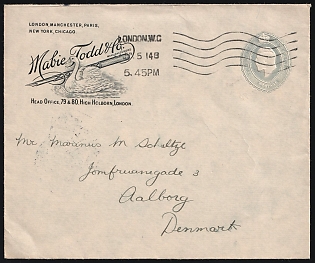 LONDON, MANCHESTER, PARIS,
NEW YORK, CHICAGO.
Mabie Todd & Co.
HEAD OFFICE, 79 & 80, HIGH HOLBORN, LONDON
LONDON, W.C
5 14
5.45PM
Mr. Marinus M Schultze
Jomfruanegade 3
Aalborg
Denmark